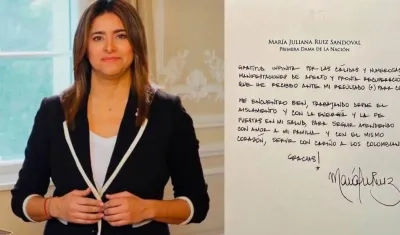 MARÍA JULIANA RUIZ SANDOVAL
PRIMERA DAMA DE LA NACIÓN
GRATITUD INFINITA POR LAS CÁLIDAS Y NUMEROSAS
MANIFESTACIONES DE AFECTO Y PRONTA RECUPERACIÓN
QUE HE RECIBIDO ANTE MI RESULTADO (+) PARA CO
ME ENCUENTRO BIEN, TRABAJANDO DESDE EL
AISLAMIENTO Y CON LA ENERGÍA Y LA FE
PUESTAS EN MI SALUD, PARA SEGUIR ATENDIENDO
CON AMOR A MI FAMILIA Y CON EL MISMO
CORAZÓN, SERVIR CON CARIÑO A LOS COLOMBIAN
GRACIAS!
María Ju Ruiz